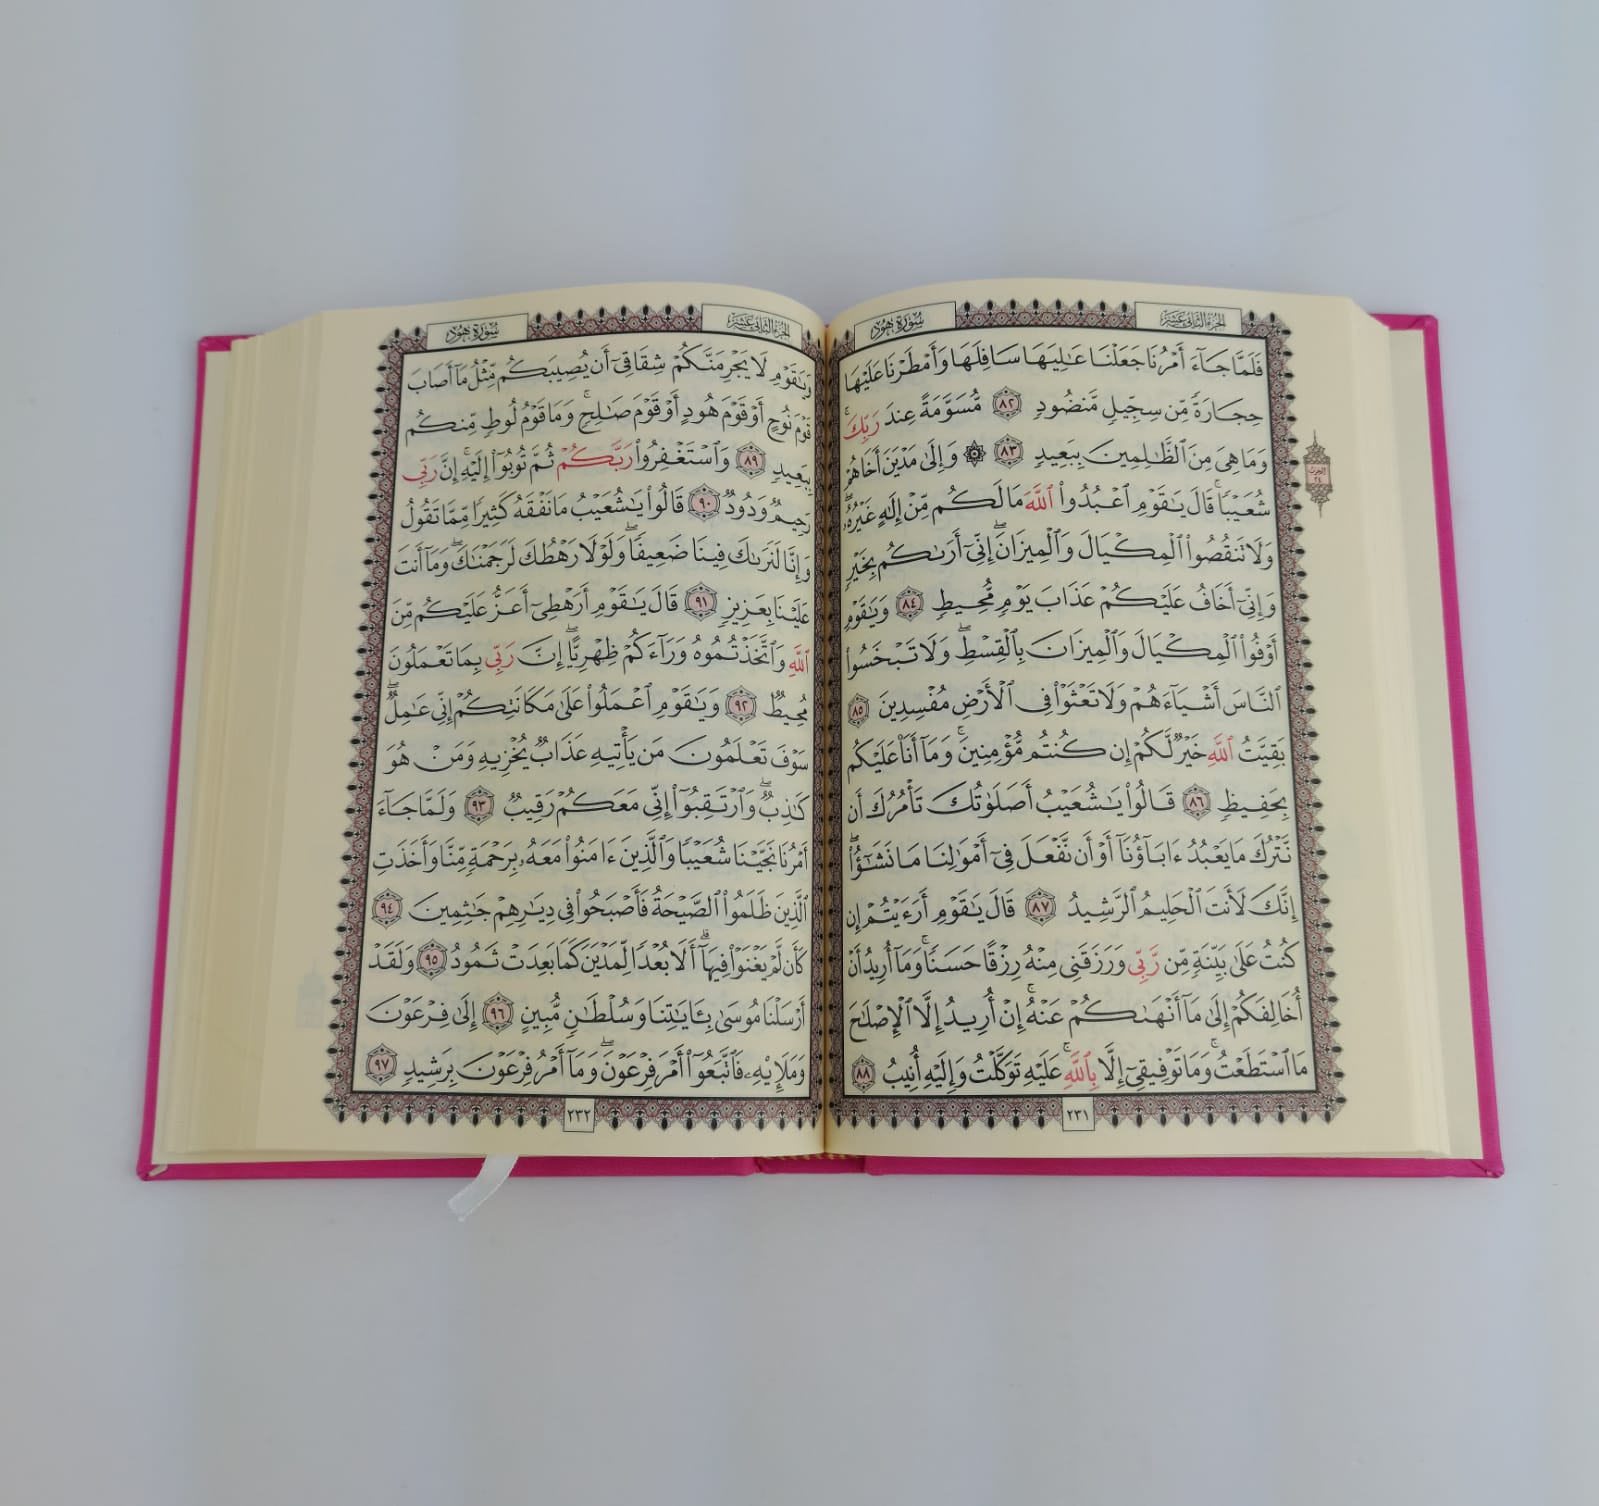 الجزء الثاني عشر
سورة هود
فَلَمَّا جَآءَ أَمْرُنَا جَعَلْنَا عَٰلِيَهَا سَافِلَهَا وَأَمْطَرْنَا عَلَيْهَا
حِجَارَةً مِّن سِجِّيلٍ مَّنضُودٍ ٨٢ مُّسَوَّمَةً عِندَ رَبِّكَۖ
وَمَا هِيَ مِنَ ٱلظَّٰلِمِينَ بِبَعِيدٍ ٨٣ ۞ وَإِلَىٰ مَدْيَنَ أَخَاهُمْ
شُعَيْبًاۚ قَالَ يَٰقَوْمِ ٱعْبُدُوا۟ ٱللَّهَ مَا لَكُم مِّنْ إِلَٰهٍ غَيْرُهُۥۖ
وَلَا تَنقُصُوا۟ ٱلْمِكْيَالَ وَٱلْمِيزَانَۖ إِنِّىٓ أَرَىٰكُم بِخَيْرٍ
وَإِنِّىٓ أَخَافُ عَلَيْكُمْ عَذَابَ يَوْمٍ مُّحِيطٍ ٨٤ وَيَٰقَوْمِ
أَوْفُوا۟ ٱلْمِكْيَالَ وَٱلْمِيزَانَ بِٱلْقِسْطِۖ وَلَا تَبْخَسُوا۟
ٱلنَّاسَ أَشْيَآءَهُمْ وَلَا تَعْثَوْا۟ فِى ٱلْأَرْضِ مُفْسِدِينَ ٨٥
بَقِيَّتُ ٱللَّهِ خَيْرٌ لَّكُمْ إِن كُنتُم مُّؤْمِنِينَۚ وَمَآ أَنَا۠ عَلَيْكُم
بِحَفِيظٍ ٨٦ قَالُوا۟ يَٰشُعَيْبُ أَصَلَوٰتُكَ تَأْمُرُكَ أَن
نَّتْرُكَ مَا يَعْبُدُ ءَابَآؤُنَآ أَوْ أَن نَّفْعَلَ فِىٓ أَمْوَٰلِنَا مَا نَشَٰٓؤُا۟ۖ
إِنَّكَ لَأَنتَ ٱلْحَلِيمُ ٱلرَّشِيدُ ٨٧ قَالَ يَٰقَوْمِ أَرَءَيْتُمْ إِن
كُنتُ عَلَىٰ بَيِّنَةٍ مِّن رَّبِّى وَرَزَقَنِى مِنْهُ رِزْقًا حَسَنًاۚ وَمَآ أُرِيدُ أَنْ
أُخَالِفَكُمْ إِلَىٰ مَآ أَنْهَىٰكُمْ عَنْهُۚ إِنْ أُرِيدُ إِلَّا ٱلْإِصْلَٰحَ
مَا ٱسْتَطَعْتُۚ وَمَا تَوْفِيقِىٓ إِلَّا بِٱللَّهِۚ عَلَيْهِ تَوَكَّلْتُ وَإِلَيْهِ أُنِيبُ ٨٨
٢٣١
الحزب
٢٤
الجزء الثاني عشر
سورة هود
وَيَٰقَوْمِ لَا يَجْرِمَنَّكُمْ شِقَاقِىٓ أَن يُصِيبَكُم مِّثْلُ مَآ أَصَابَ
قَوْمَ نُوحٍ أَوْ قَوْمَ هُودٍ أَوْ قَوْمَ صَٰلِحٍۚ وَمَا قَوْمُ لُوطٍ مِّنكُم
بِبَعِيدٍ ٨٩ وَٱسْتَغْفِرُوا۟ رَبَّكُمْ ثُمَّ تُوبُوٓا۟ إِلَيْهِۚ إِنَّ رَبِّى
رَحِيمٌ وَدُودٌ ٩٠ قَالُوا۟ يَٰشُعَيْبُ مَا نَفْقَهُ كَثِيرًا مِّمَّا تَقُولُ
وَإِنَّا لَنَرَىٰكَ فِينَا ضَعِيفًاۖ وَلَوْلَا رَهْطُكَ لَرَجَمْنَٰكَۖ وَمَآ أَنتَ
عَلَيْنَا بِعَزِيزٍ ٩١ قَالَ يَٰقَوْمِ أَرَهْطِىٓ أَعَزُّ عَلَيْكُم مِّنَ
ٱللَّهِ وَٱتَّخَذْتُمُوهُ وَرَآءَكُمْ ظِهْرِيًّاۖ إِنَّ رَبِّى بِمَا تَعْمَلُونَ
مُحِيطٌ ٩٢ وَيَٰقَوْمِ ٱعْمَلُوا۟ عَلَىٰ مَكَانَتِكُمْ إِنِّى عَٰمِلٌۖ
سَوْفَ تَعْلَمُونَ مَن يَأْتِيهِ عَذَابٌ يُخْزِيهِ وَمَنْ هُوَ
كَٰذِبٌۖ وَٱرْتَقِبُوٓا۟ إِنِّى مَعَكُمْ رَقِيبٌ ٩٣ وَلَمَّا جَآءَ
أَمْرُنَا نَجَّيْنَا شُعَيْبًا وَٱلَّذِينَ ءَامَنُوا۟ مَعَهُۥ بِرَحْمَةٍ مِّنَّا وَأَخَذَتِ
ٱلَّذِينَ ظَلَمُوا۟ ٱلصَّيْحَةُ فَأَصْبَحُوا۟ فِى دِيَٰرِهِمْ جَٰثِمِينَ ٩٤
كَأَن لَّمْ يَغْنَوْا۟ فِيهَآۗ أَلَا بُعْدًا لِّمَدْيَنَ كَمَا بَعِدَتْ ثَمُودُ ٩٥ وَلَقَدْ
أَرْسَلْنَا مُوسَىٰ بِـَٔايَٰتِنَا وَسُلْطَٰنٍ مُّبِينٍ ٩٦ إِلَىٰ فِرْعَوْنَ
وَمَلَإِي۟هِۦ فَٱتَّبَعُوٓا۟ أَمْرَ فِرْعَوْنَۖ وَمَآ أَمْرُ فِرْعَوْنَ بِرَشِيدٍ ٩٧
٢٣٢